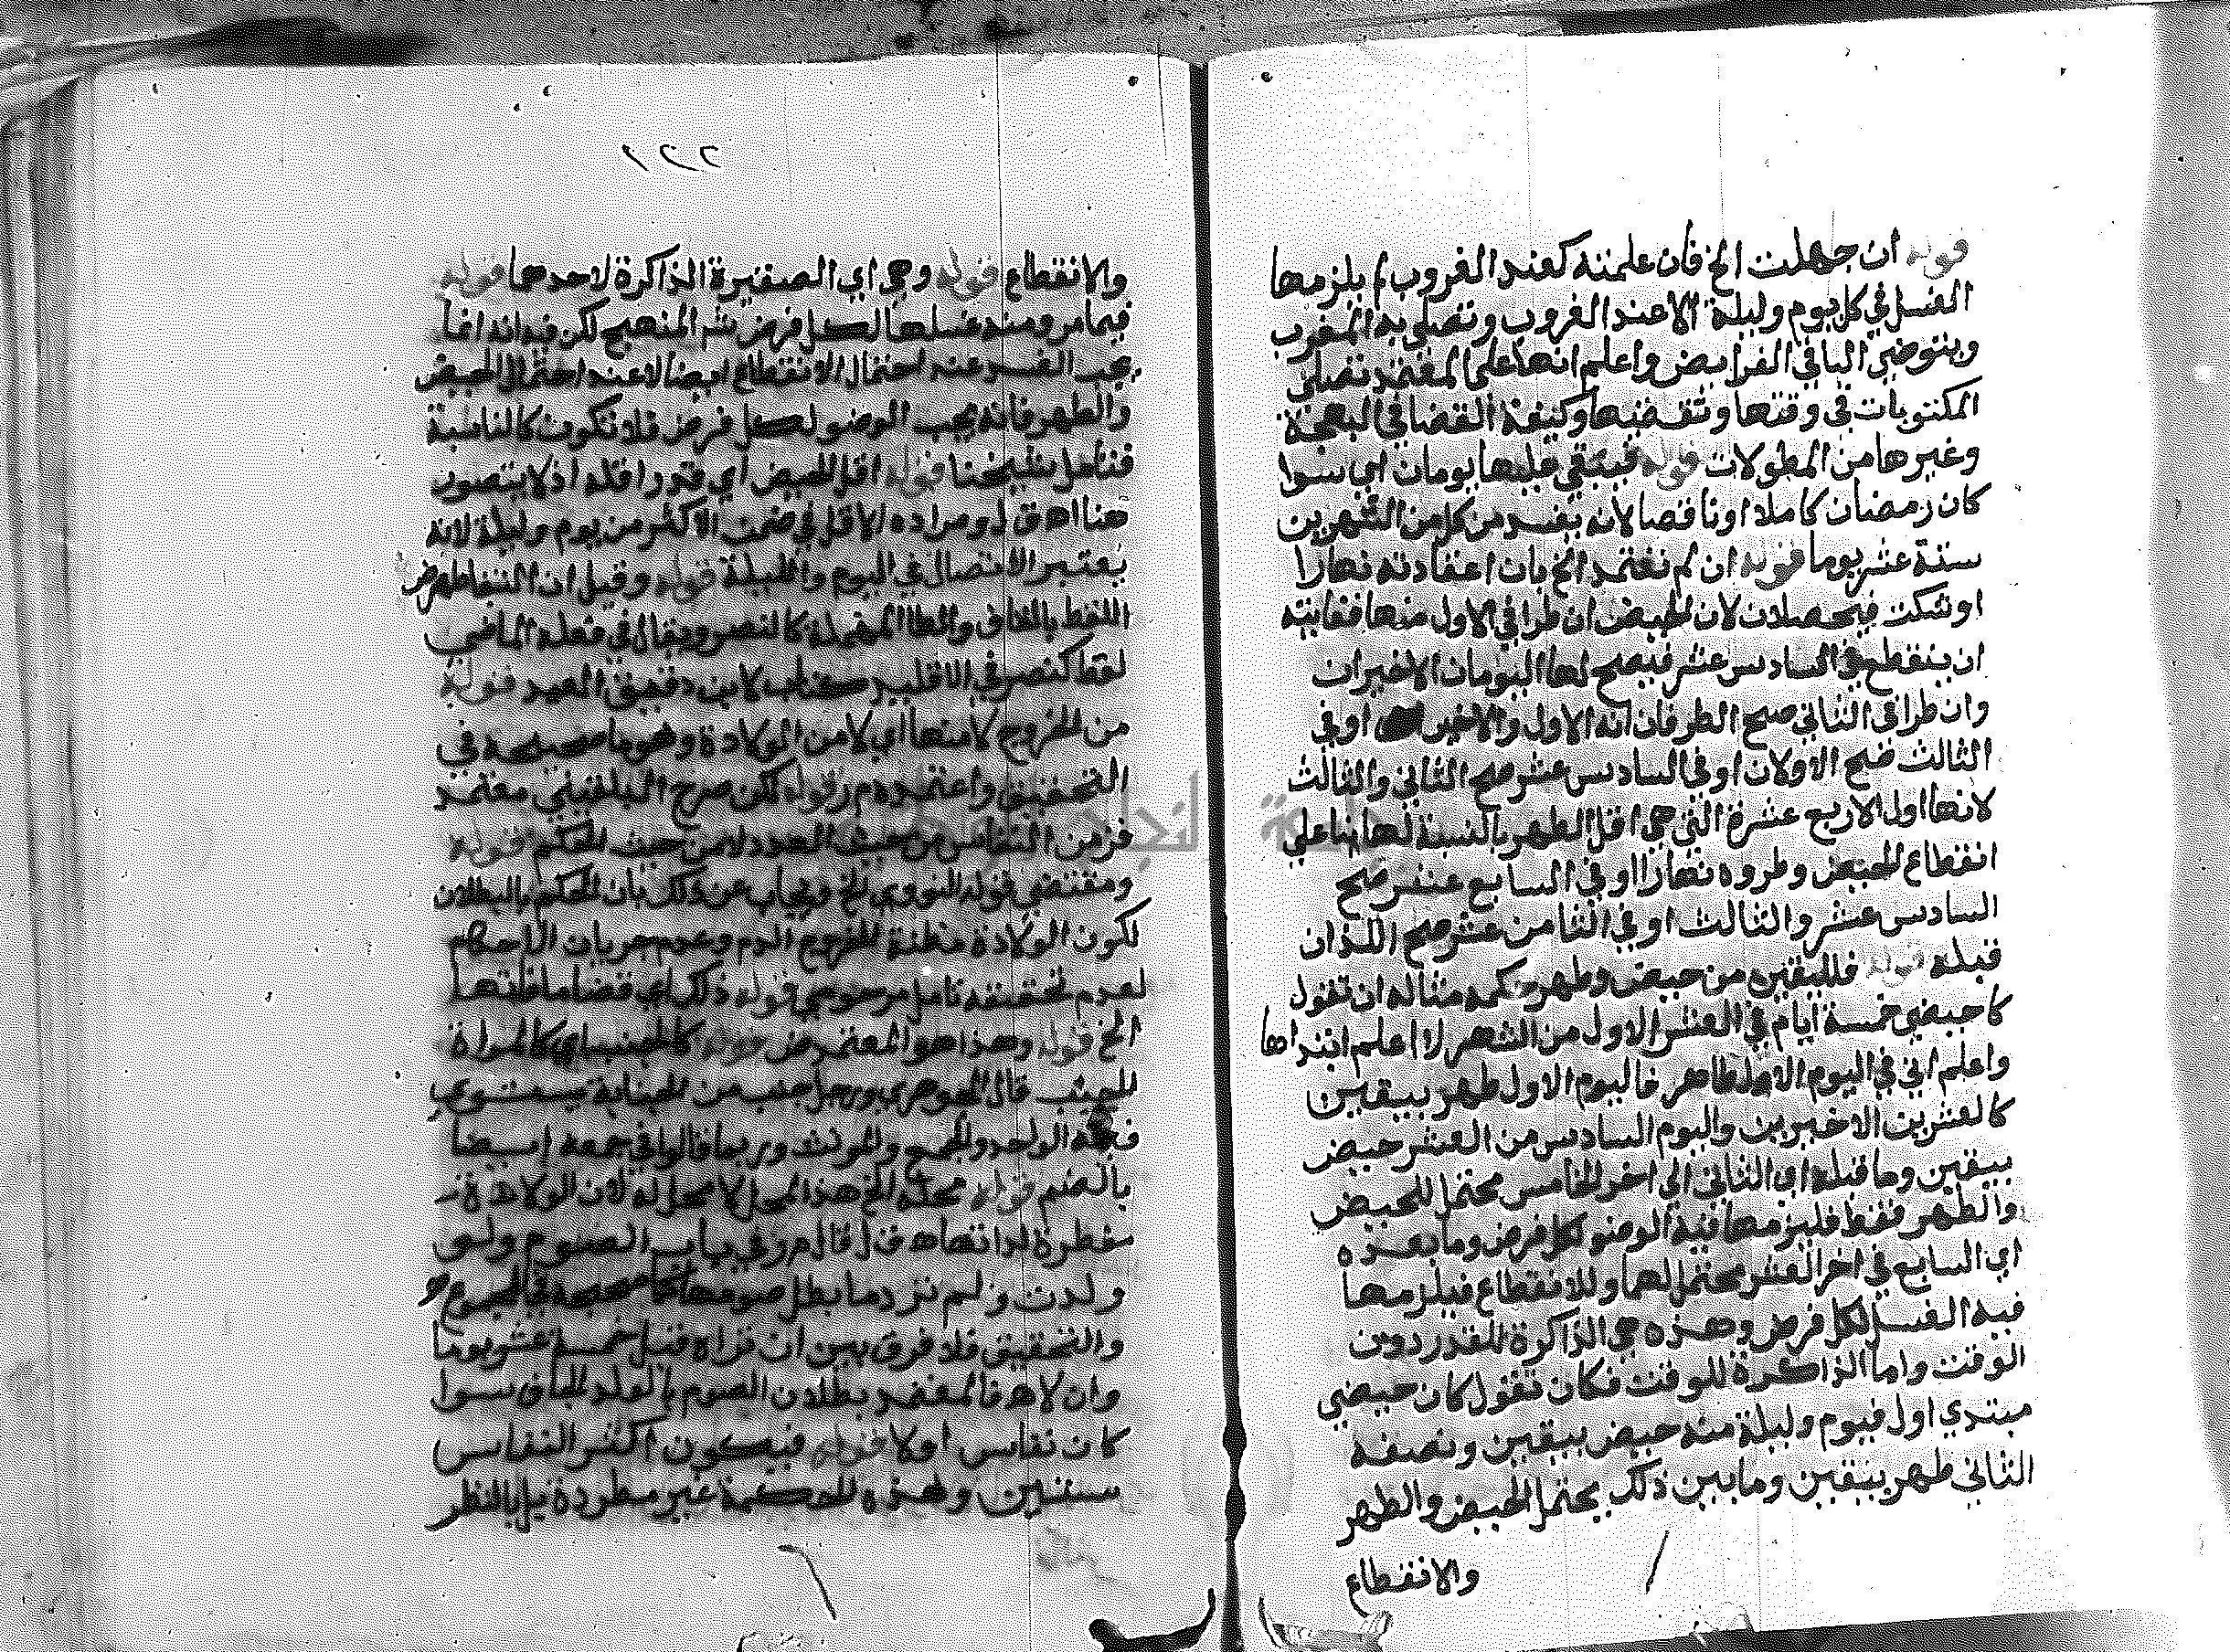 قوله ان جهلت الخ فان علمته كعند الغروب لم يلزمها
الغسل في كل يوم وليلة الا عند الغروب وتصلي به المغرب
ويتوضي لباقي الفرايض واعلم انها على المعتمد تصلي
المكتوبات في وقتها وتقضيها وكيفية القضا في البهجة
وغيرها من المطولات قوله فيبقي عليها يومان اي سوا
كان رمضان كاملا او ناقصا لانه يفسد من كل من الشهرين
ستة عشر يوما قوله ان لم تعتد الخ بان اعتادته نهارا
او شكت فيحصلان لان الحيض ان طرا في الاول منها فغايته
ان ينقطع في السادس عشر فيصح لها اليومان الاخيران
وان طرا في الثاني صح الطرفان انه الاول والاخير او في
الثالث صح الاولان او في السادس عشر صح الثاني والثالث
لانها اول الاربع عشرة التي هي اقل الطهر بالنسبة لها بنا على
انقطاع الحيض وطروه نهارا او في السابع عشر صح
السادس عشر والثالث او في الثامن عشر صح اللذان
قبله قوله فلليقين من حيض وطهر حكمه مثاله ان تقول
كا حيضي خمسة ايام في العشر الاول من الشهر لا اعلم ابتداها
واعلم اني في اليوم الاول طاهر فاليوم الاول طهر بيقين
كالعشرين الاخيرين واليوم السادس من العشر حيض
بيقين وما قبله اي الثاني الى اخر الخامس محتمل للحيض
والطهر فقط فليزمها فيه الوضو لكل فرض وما بعده
اي السابع في اخر العشر محتمل لهما وللانقطاع فيلزمها
فيه الغسل لكل فرض وهذه هي الذاكرة للقدر دون
الوقت واما الذاكرة للوقت فكان تقول كان حيضي
مبتدي اول فيوم وليلة منه حيض بيقين ونصفه
الثاني طهر بيقين وما بين ذلك يحتمل الحيض والطهر
والانقطاع
٢٢١
والانقطاع قوله وهي اي الصغيرة الذاكرة لاحدها قوله
فيما مر ومنه غسلها لكل فرض شر المنهج لكن فيه انه انما
يجب الغسل عند احتمال الانقطاع ايضا لا عند احتمال الحيض
والطهر فانه يجب الوضو لكل فرض فلا تكون كالناسية
فتامل شيخنا قوله اقل الحيض اي قدر اقله اذ لا يتصور
هنا اه ق ل ومراده الاقل في ضمن الاكثر من يوم وليلة لانه
يعتبر الاتصال في اليوم والليلة قوله وقيل ان النقا طهر ض
اللقط بالقاف والطا المهملة كالنصر ويقال في فعله الماضي
لقط كنصر في الاقليد كتاب لابن دقيق العيد قوله
من الخروج لا منها اي لا من الولادة وهو ما صححه في
التحقيق واعتمده م ر قوله لكن صرح البلقيني معتمد
فزمن النفاس من حيث العدد لا من حيث الحكم قوله
ومقتضي قوله النووي الخ ويجاب عن ذلك بان الحكم بالبطلان
لكون الولادة مظنة لخروج الدم وعدم جريان الاحكام
لعدم تحققه تامل مرحومي قوله ذلك اي قضا ما فاتها
الخ قوله وهذا هو المعتمد ض قوله كالجنب اي كالمراة
الجنب قال الجوهري ورجل جنب من الجنابة يستوي
فيه الواحد والجمع والمونث وربما قالوا في جمعه
بالضم قوله محله الخ هذا المحل لا محل له لان الولادة
مفطرة لذاتها ه ق ل قال م ر وفي باب الصوم ولو
ولدت ولم تر دما بطل صومها كما صححه في المجموع
والتحقيق فلا فرق بين ان تراه قبل خمسة عشر يوما
وان لا ه فالمعتمد بطلان الصوم بالولد الجاف سوا
كان نفاس اولا قوله فيكون اكثر النفاس
ستين وهذه الحكمة غير مطردة بل بالنظر